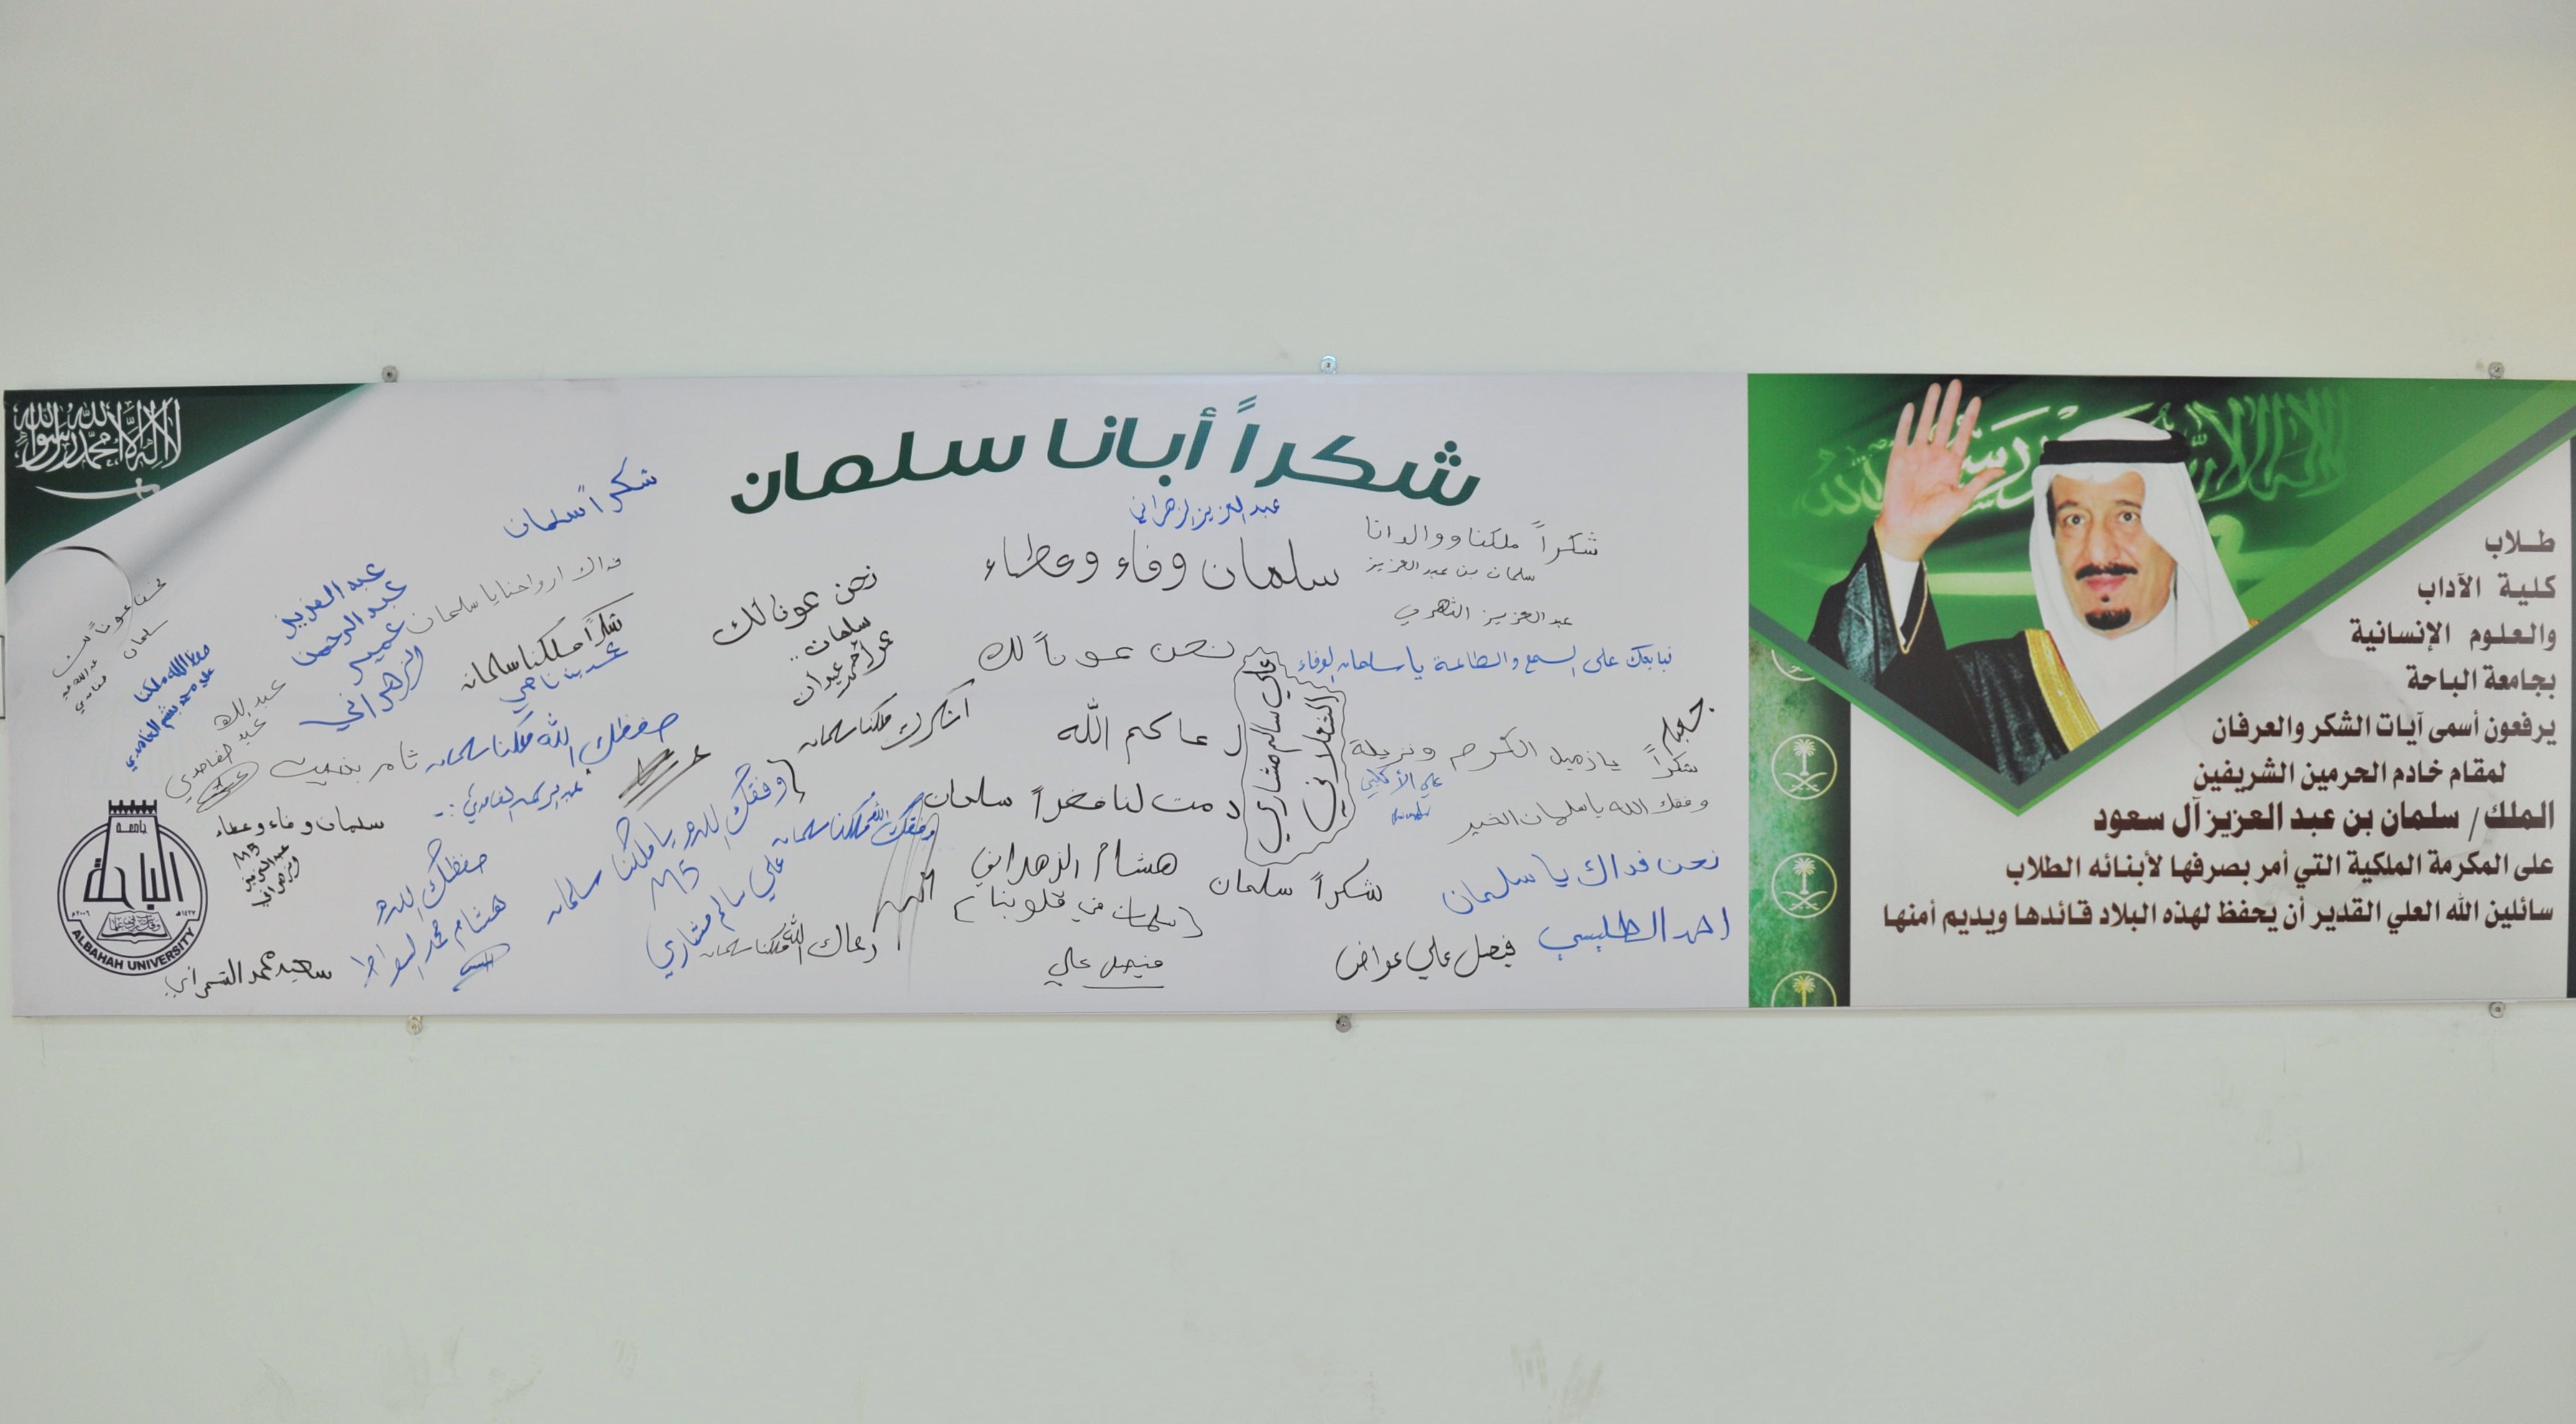 شكراً أبانا سلمان
طلاب
كلية الآداب
والعلوم الإنسانية
بجامعة الباحة
يرفعون أسمى آيات الشكر والعرفان
لمقام خادم الحرمين الشريفين
الملك/ سلمان بن عبد العزيز آل سعود
على المكرمة الملكية التي أمر بصرفها لأبنائه الطلاب
سائلين الله العلي القدير أن يحفظ لهذه البلاد قائدها ويديم أمنها
لا إله إلا الله محمد رسول الله
عبد العزيز الزهراني
شكراً ملكنا ووالدانا
سلمان بن عبد العزيز
عبد العزيز الشهري
سلمان وفاء وعطاء
نبايعك على السمع والطاعة يا سلمان الوفاء
نحن عوناً لك
علي سالم مشاري
شكراً يا زميل الكرم ونزيله
وفقك الله يا سلمان الخير
دمت لنا فخراً سلمان
نحن فداك يا سلمان
شكراً سلمان
هشام الزهراني
سلمان في قلوبنا
فيصل علي عواض
فيصل علي
شكراً سلمان
فداك ارواحنا يا سلمان
نحن عونا لك
سلمان
شكراً ملكنا سلمان
عبد العزيز
عبد الرحمن
عمير
الزهراني
اشكرك ملكنا سلمان
حفظك الله ملكنا سلمان
ثامر بخيت
وفقك الله يا ملكنا سلمان
M5
وفقك الله ملكنا سلمان
علي سالم مشاري
رعاك الله ملكنا سلمان
حفظك الله
سلمان وفاء وعطاء
M5
عبد العزيز
الزهراني
جامعة
الباحة
٢٠٠٦م
١٤٢٧هـ
ALBAHAH UNIVERSITY